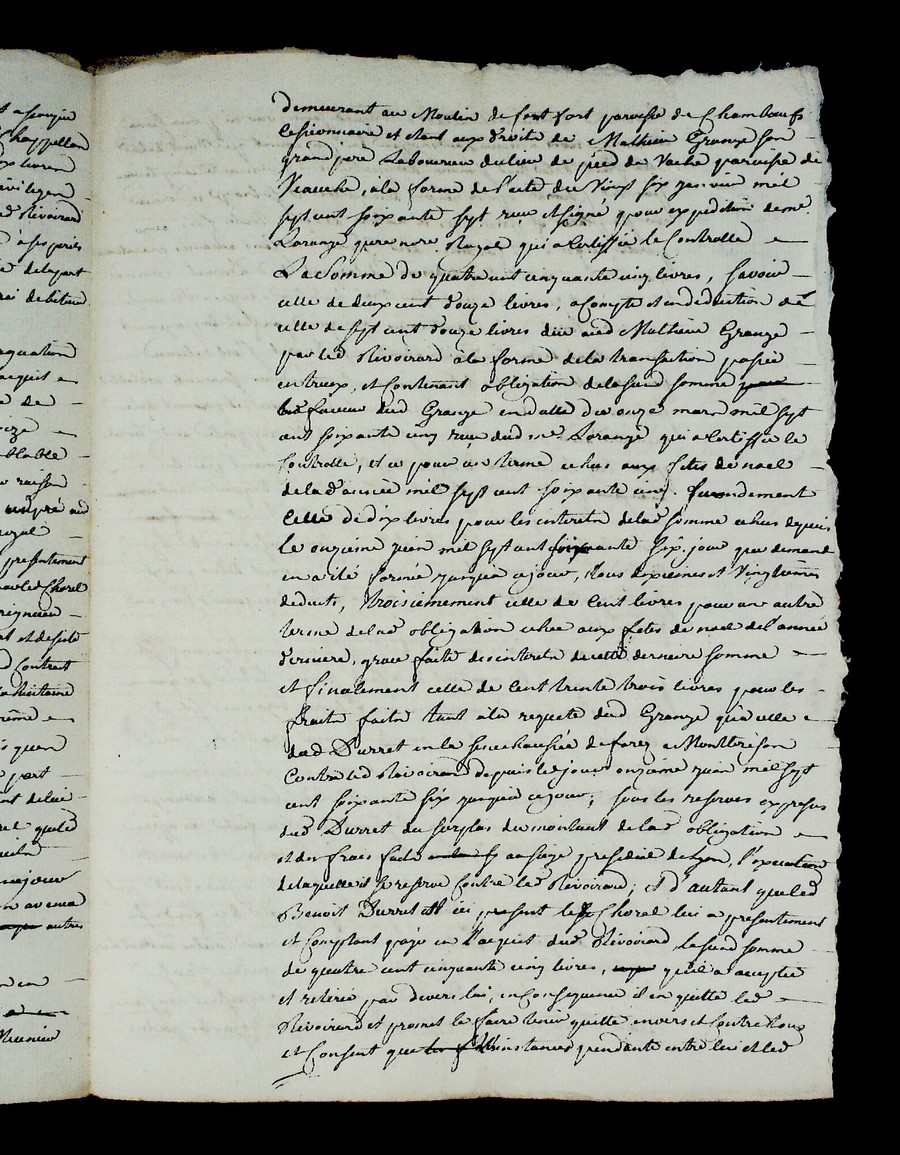 a
Chappellon
livres
privilegen
led Rivoirard
à ses peries
de lapart
de bituu
equation
acquit
de
size
blable
raison
aud
royal
presentement
led Chorel
et de suite
contrat
luitaine
même
quon
part
de lui
quele
avenu
autres
en
Meunier
demeurant au Moulin de fort fort paroisse de Chambœuf
cessionnaire et étant aux droits de Mathieu Grange son
grand pere Laboureur du lieu de pied de Vache paroisse de
Veauche, à la forme de l'acte du Vingt six janvier mil
sept cent soixante sept reçu et signé pour expedition de me.
Larange pere nore. Royal qui a Certiffié le Controlle
La Somme de quatre cent cinquante cinq livres, savoir
celle de deux cent douze livres, a Compte et en deduction de
celle de sept cent douze livres düe aud Mathieu Grange
par led Rivoirard à la forme de la transaction passée
entr'eux, et Contenant obligation de la sud somme
faveur dud Grange en datte du onze mars mil sept
cent soixante cinq reçu dud me. Larange qui a Certiffié le
Controlle, et ce pour un terme echus aux fetes de noel
de lad année mil sept cent soixante cinq. secondement
Celle de dix livres pour les interets de lad somme echus depuis
le onzieme juin mil sept cent soixante six. jour que demande
en a été formée jusqu'a ce jour, tous dixiemes et Vingtièmes
deduits, troisiemement celle de Cent livres pour un autre
terme de lad obligation echue aux fetes de noel de l'année
derniere, grace faite des interets de cette derniere somme
et finalement celle de Cent trente trois livres pour les
fraits faits tant à la requete dud Grange qu'a celle
dud Durret en la senechaussée de forez a Montbrison
Contre led Rivoirard depuis led jour onzieme juin mil sept
cent soixante six jusqu'a ce jour; sous les reserves expresses
dud Durret du surplus du montant de lad obligation
et des frais faits au siege presidial de Lyon, l'execution
de laquelle il se reserve Contre led Rivoirard; et d'autant que led
Benoit Durret ici present led Chorel lui a presentement
et Comptant payé en l'acquit dud Rivoirard la sud somme
de quatre cent cinquante cinq livres, qu'il a acceptée
et retirée par devers lui, en Consequence il en quitte led
Rivoirard et promet le faire tenir quitte envers et Contre tous
et Consent que instances pendante entre lui et led